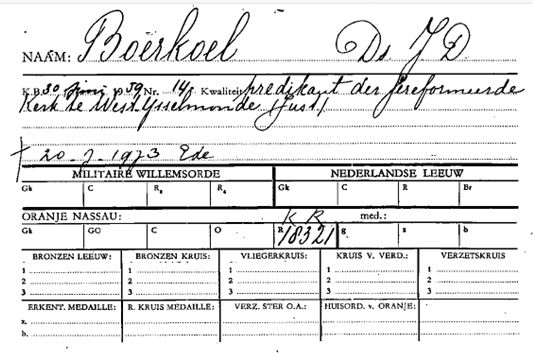 NAAM: Boërkoel Ds J D.
K.B. 30 juni 1959 Nr. 14, Kwaliteit predikant der Gereformeerde
Kerk te West-IJsselmonde (Just)
† 20-7-1973 Ede
MILITAIRE WILLEMSORDE NEDERLANDSE LEEUW
Gk C R₃ R₄ Gk C R Br
ORANJE NASSAU: K R med.:
Gk GO C O R 18321 g z b
BRONZEN LEEUW: BRONZEN KRUIS: VLIEGERKRUIS: KRUIS V. VERD.: VERZETSKRUIS
1 1 1 1 1
2 2 2 2 2
3 3 3 3 3
ERKENT. MEDAILLE: R. KRUIS MEDAILLE: VERZ. STER O.A.: HUISORD. v. ORANJE:
a.
b.